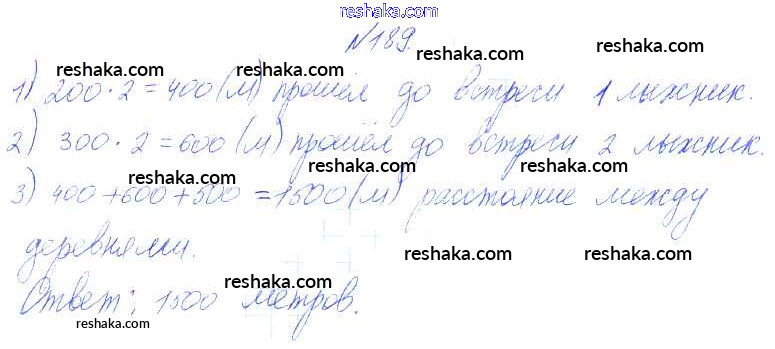 reshaka.com
№189.
reshaka.com
reshaka.com reshaka.com
1) 200·2=400(м) прошёл до встречи 1 лыжник.
reshaka.com reshaka.com
2) 300·2=600(м) прошёл до встречи 2 лыжник.
reshaka.com reshaka.com
3) 400+600+500=1500(м) расстояние между
деревнями. reshaka.com
reshaka.com reshaka.com
Ответ: 1500 метров.
reshaka.com